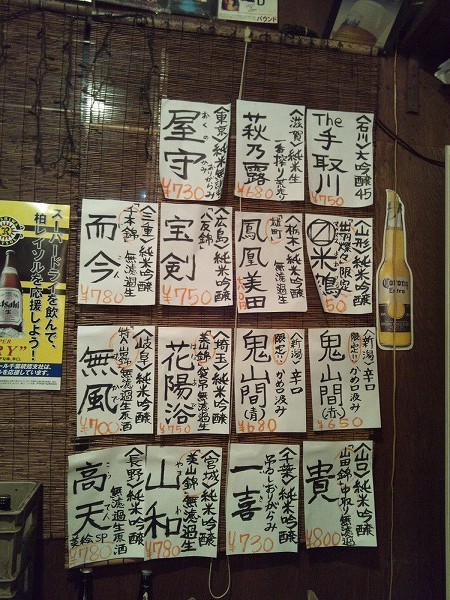 バウンド
〈石川〉大吟醸45
The手取川
¥750
〈滋賀〉純米生
萩乃露
¥680
〈東京〉純米無
屋守
おくのかみ
¥730
〈山形〉純米吟醸
限定
米鶴
50
〈栃木〉純米吟醸
無濾過生
鳳凰美田
〈広島〉純米吟醸
八反錦
宝剣
¥750
〈三重〉純米吟醸
千本錦 無濾過生
而今
¥780
〈新潟〉辛口
限定!! かめ口汲み
鬼山間(赤)
¥650
〈新潟〉辛口
限定!! かめ口汲み
鬼山間(青)
¥680
〈埼玉〉純米吟醸
花陽浴
¥750
〈岐阜〉純米吟醸
無濾過生原酒
無風
¥700
〈山口〉純米吟醸
山田錦 中取り無濾過
貴
¥800
〈千葉〉純米吟醸
一喜
¥730
〈宮城〉純米吟醸
美山錦 無濾過生
山和
¥780
〈長野〉純米吟醸
無濾過生原酒
高天
美絵SP
¥780
スーパードライを飲んで、
柏レイソルを応援しよう!
Asahi
Corona
Extra